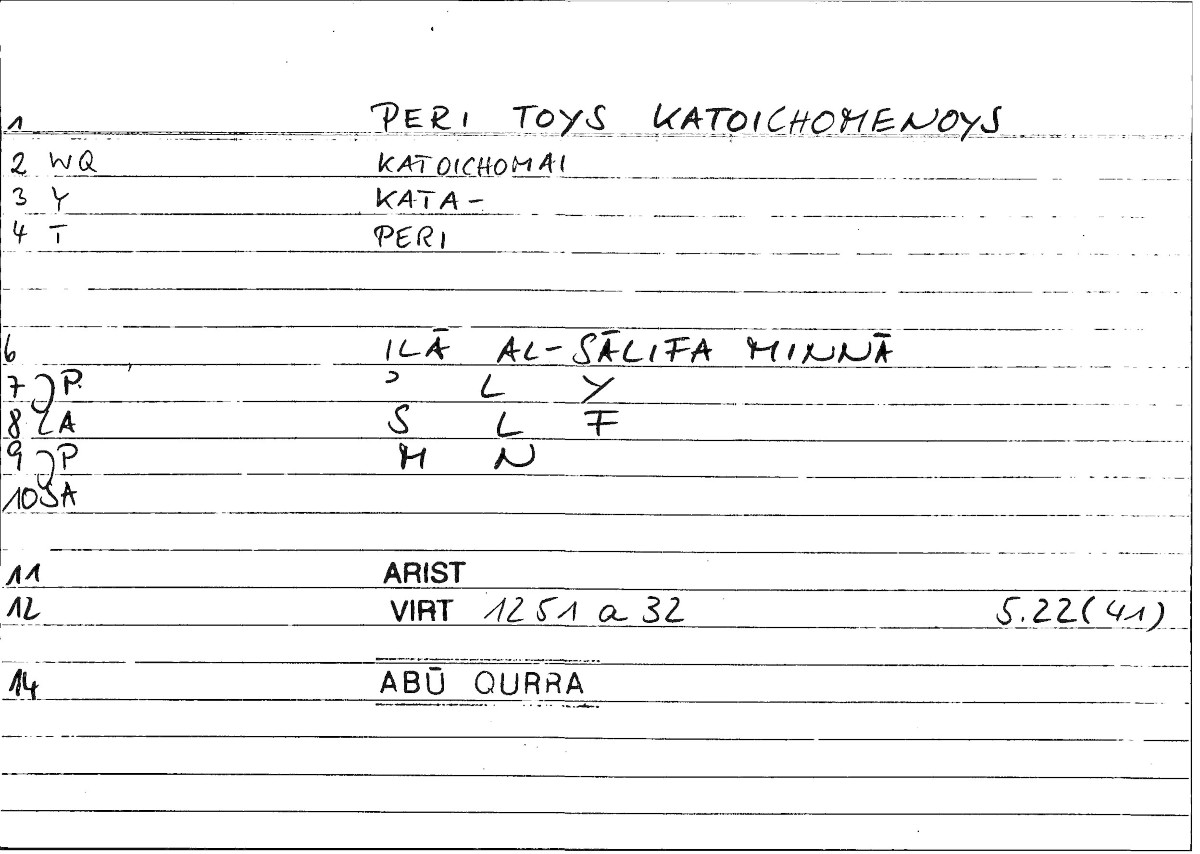 1 PERI TOYS KATOICHOMENOYS
2 WQ KATOICHOMAI
3 Y KATA-
4 T PERI
6 ILĀ AL-SĀLIFA MINNĀ
7 P ʾ L Y
8 A S L F
9 P M N
10 A
11 ARIST
12 VIRT 1251 a 32 5.22(41)
14 ABŪ QURRA